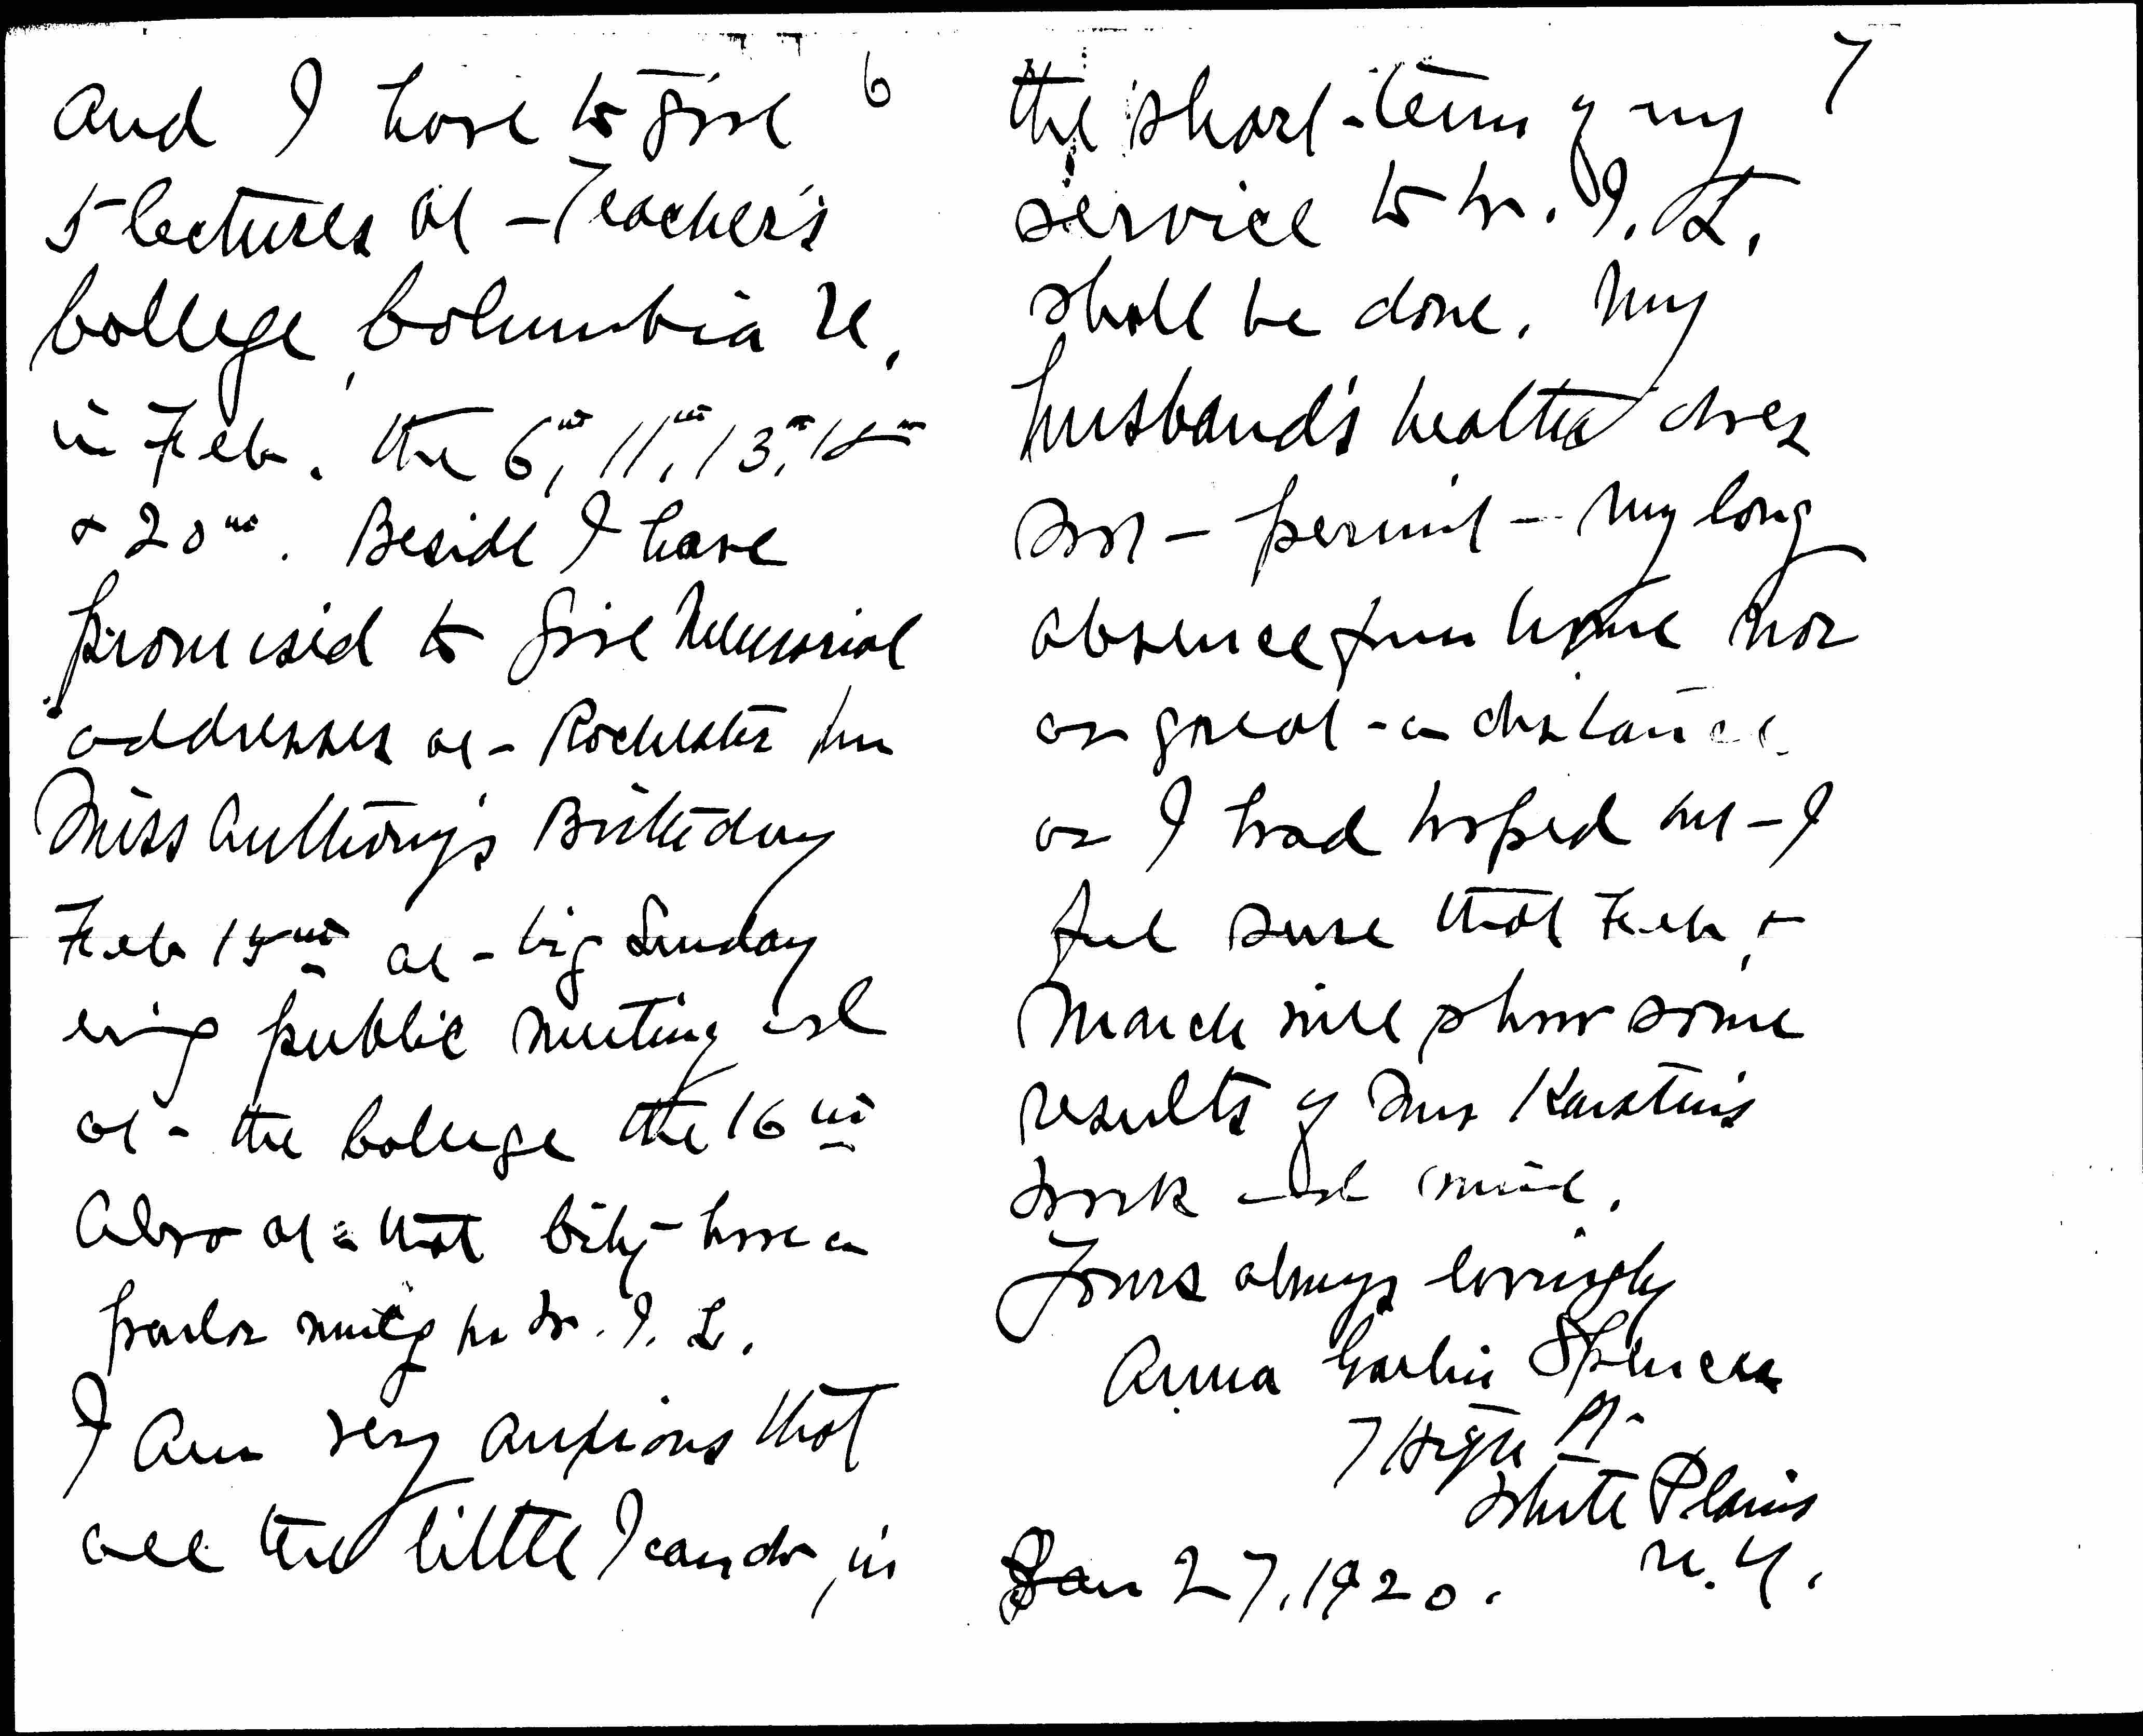 6
and I have to give
5 lectures at Teacher's
College, Columbia U.
in Feb. the 6th, 11th, 13th, 18th
& 20th. Beside I have
promised to give Memorial
addresses at Rochester for
Miss Anthony's Birthday
Feb 15th at big Sunday
evng public meeting and
at the College the 16th
Also at that City have a
parlor meetg for W. I. L.
I am very anxious that
all the little I can do, in
7
the short term of my
service to W. I. L.
shall be done. My
husband's health does
not permit my long
absence from home nor
as great a distance
as I had hoped but I
feel sure that Feb. &
March will show some
results of Mrs Karsten's
work and mine.
Yours always lovingly
Anna Garlin Spencer
7 High St.
White Plains
N. Y.
Jan 27, 1920.